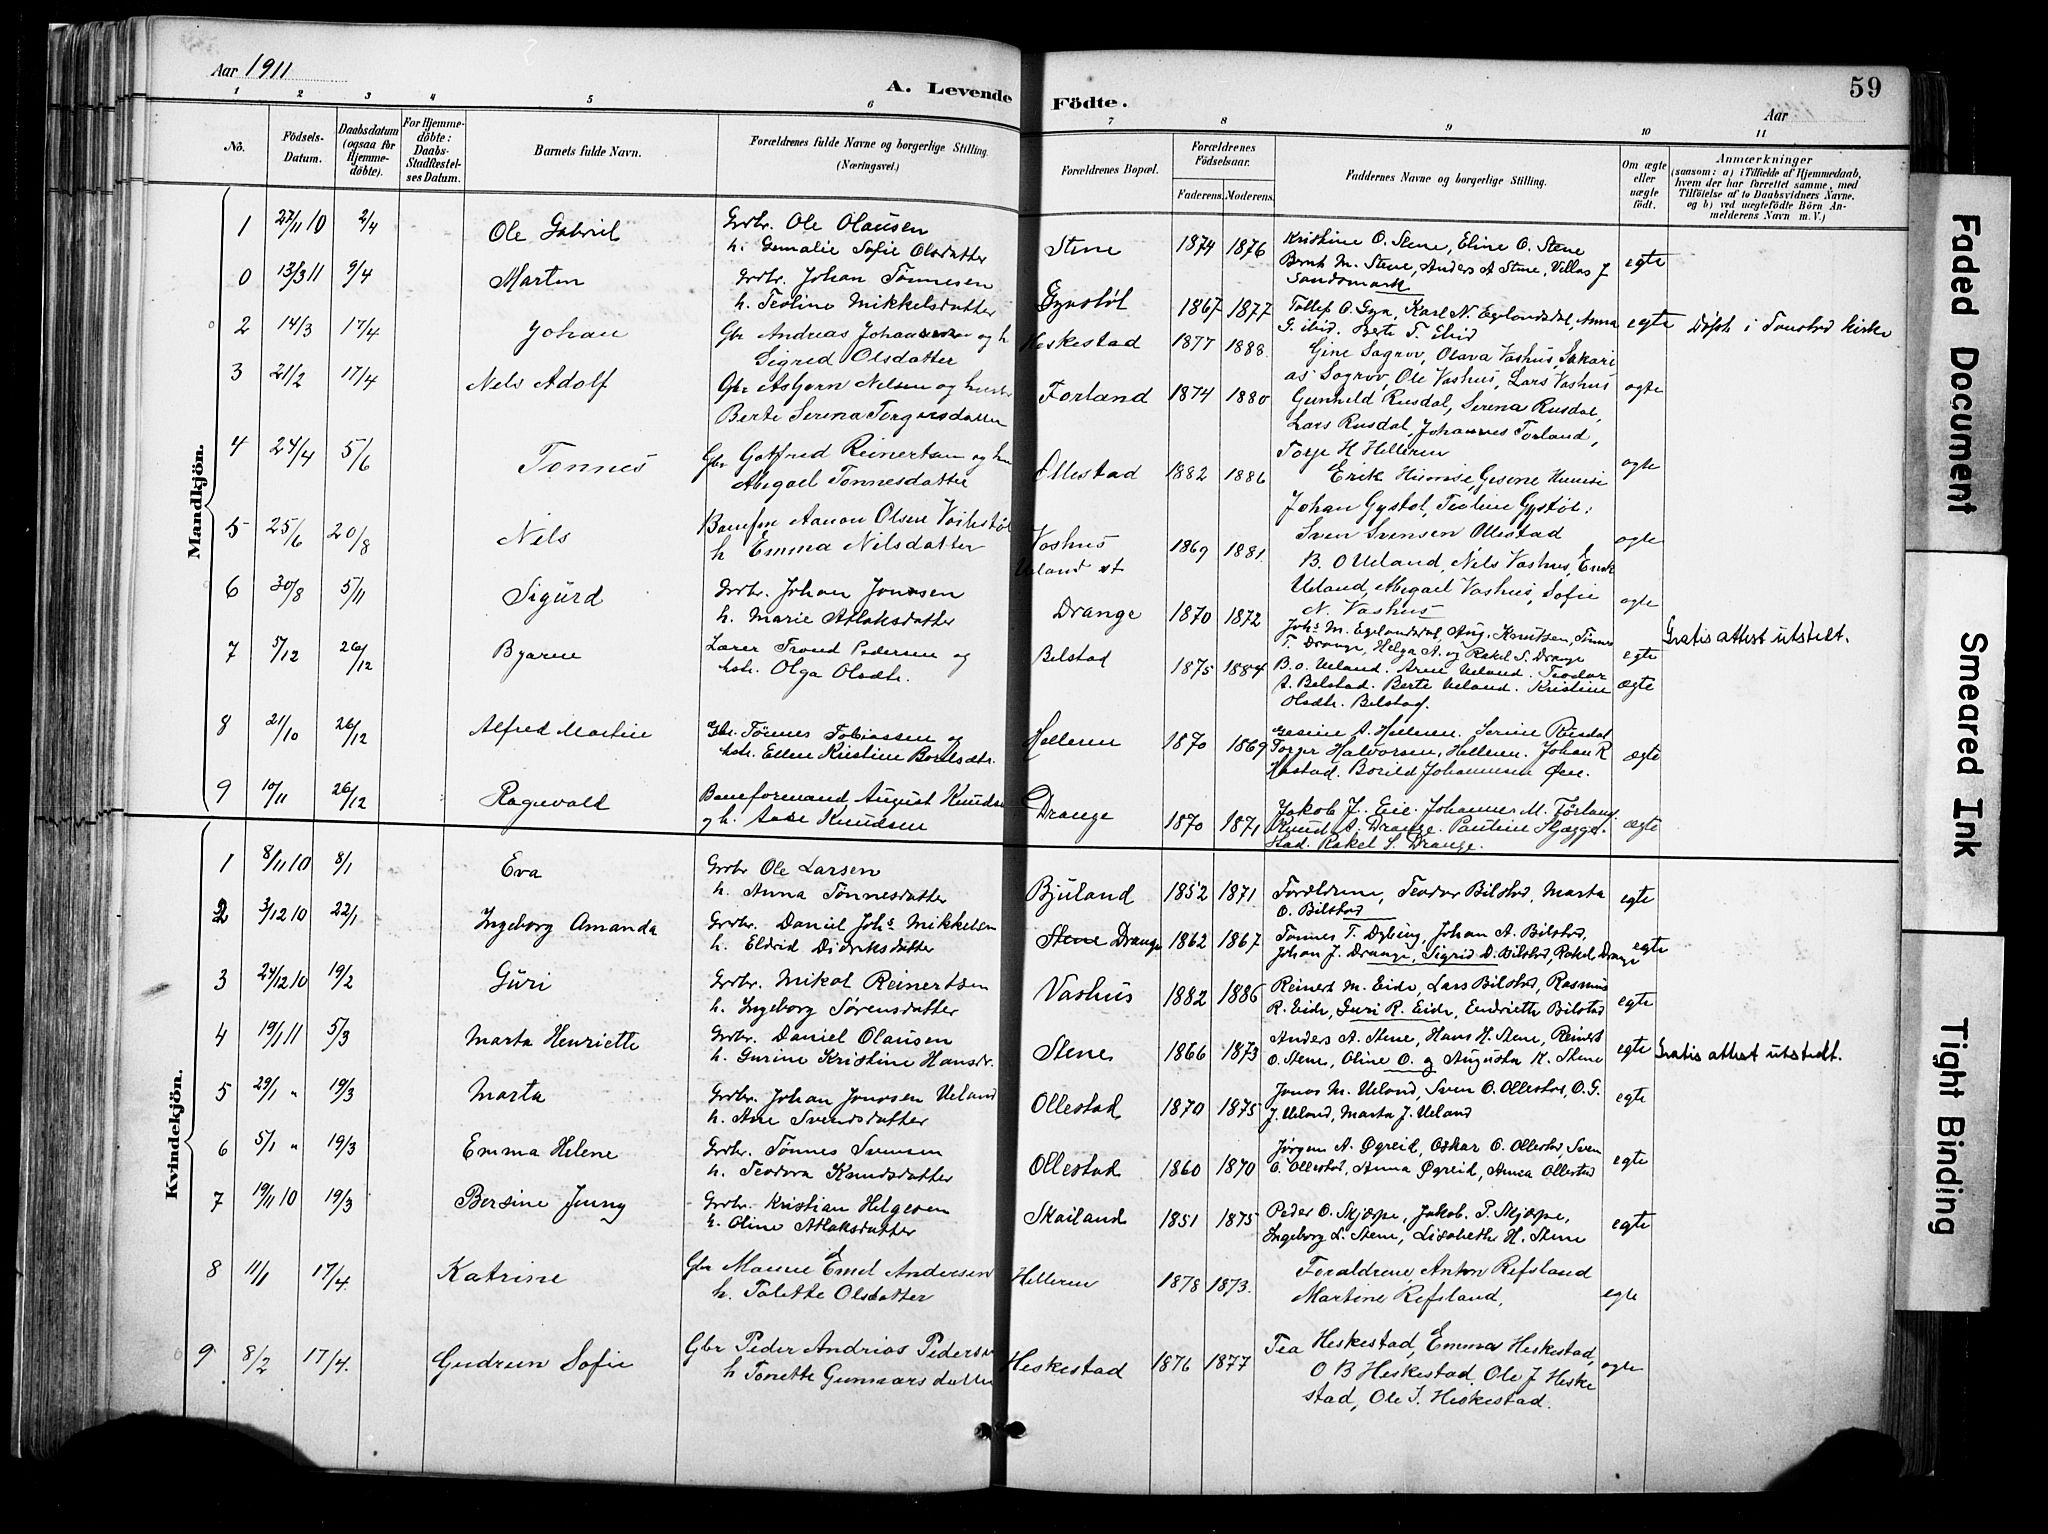 Aar 1911
A. Levende Födte.
59
Aar
1 2 3 4 5 6 7 8 9 10 11
No. Födsels-Datum. Daabsdatum (ogsaa for Hjemmedöbte). For Hjemmedöbte: Daabs-Stadfæstelses Datum. Barnets fulde Navn. Forældrenes fulde Navne og borgerlige Stilling. (Næringsvei.) Forældrenes Bopæl. Forældrenes Födselsaar. Faderens. Moderens. Faddernes Navne og borgerlige Stilling. Om ægte eller uægte födt. Anmærkninger (saasom: a) i Tilfælde af Hjemmedaab, hvem der har forrettet samme, med Tilföielse af to Daabsvidners Navne. og b) ved uægtefödte Börn Anmelderens Navn m. V.)
Mandkjön.
1 27/11 10 2/4 Ole Gabriel Grbr. Ole Olausen h. Gemalie Sofie Olsdatter Stene 1874 1876 Kristine O. Stene, Eline O. Stene Bernt M. Stene, Anders A Stene, Villas J Sandsmark egte
0 13/3 11 9/4 Martin Grbr. Johan Tönnesen h. Teoline Mikkelsdatter Gystöl 1867 1877 Tollef O. Gya, Karl N. Egelandsdal, Anna G. ibid. Berte T. Ebid egte Döpt i Tonstad kirke
2 14/3 17/4 Johan Gbr Andreas Johannesen og h Sigred Olsdatter Heskestad 1877 1888 Gine Sagrov, Olava Vashus, Sakarias Sagrov, Ole Vashus, Lars Vashus egte
3 21/2 17/4 Nels Adolf Gbr Asbjørn Nilsen og hustr Berte Serena Torgersdatter Forland 1874 1880 Gunheld Rusdal, Serena Rusdal, Lars Rusdal, Johannes Forland, Torje H Helleren
4 24/4 5/6 Tonnes Gbr Gotfred Reinertsen og hu Abigael Tonnesdatter Ollestad 1882 1886 Erik Humse, Gesene Humse Johan Gystol, Teoline Gystöl: Sven Svensen Ollestad egte
5 25/6 20/8 Nils Banefm Aanon Olsen h Emma Nilsdatter Vashus Ueland st 1869 1881 B. O Ueland, Nils Vashus, Erik Ueland, Abigael Vashus, Sofie N. Vashus egte
6 30/8 5/11 Sigurd Grbr. Johan Jonasen h. Marie Atlaksdatter Drange 1870 1872 Johs M. Egelandsdal, Aug. Knutsen, Tönnes T. Drange, Helga A. og Rakel S. Drange egte Gratis attest utstedt.
7 5/12 26/12 Bjarne Lærer Trond Pedersen og hstr. Olga Olsdtr. Bilstad 1875 1884 B. O. Ueland. Arne Ueland. Teodor A. Bilstad. Berte Ueland. Kristine Olsdtr. Bilstad. ægte
8 21/10 26/12 Alfred Martin Gbr. Tönnes Tobiassen og hstr. Ellen Kristine Helleren 1870 1869 Gesine A. Helleren. Serine Rusdal Torger Halvorsen, Helleren. Johan R Hastad. Borild Johannesen Öen. ægte
9 10/11 26/12 Ragnvald Baneformand August Knudsen og h. Aase Knudsen Drange 1870 1871 Jakob J. Eie. Johannes M. Förland Knud A. Drange. Pauline Skjæggestad. Rakel S. Drange. ægte
Kvindekjön.
1 8/11 10 8/1 Eva Grbr Ole Larsen h. Anna Tönnesdatter Bjuland 1852 1871 Forældrene, Teodor Bilstad, Marta O. Bilstad egte
2 3/12 10 22/1 Ingeborg Amanda Grbr. Daniel Johs Mikkelsen h. Eldrid Didriksdatter Stene Drange 1862 1867 Tönnes T. Dybing, Johan A. Bilstad, Johan J. Drange, Sigrid D. Bilstad, Rakel Drange egte
3 24/12 10 19/2 Guri Grbr. Mikal Reinertsen h. Ingeborg Sörensdatter Vashus 1882 1886 Reinert M. Eide, Lars Bilstad, Rasmus R. Eide, Guri R. Eide, Endriette Bilstad egte
4 19/1 11 5/3 Marta Henriette Grbr. Daniel Olausen h. Gurine Kristine Hansdr. Stene 1866 1873 Anders A. Stene, Hans H. Stene, Reinert O. Stene, Oline O. og Augusta K. Stene egte Gratis attest utstedt.
5 29/1 " 19/3 Marta Grbr. Johan Jonasen Ueland h. Ane Svendsdatter Ollestad 1870 1875 Jonas M. Ueland, Sven O. Ollestad, O. G. J. Ueland, Marta J. Ueland egte
6 5/1 " 19/3 Emma Helene Grbr. Tönnes Svensen h. Teodora Knudsdatter Ollestad 1860 1870 Jørgen A. Øgreid, Oskar O. Ollestad, Sven O. Ollestad, Anna Øgreid, Anna Ollestad egte
7 19/11 10 19/3 Bersine Jenny Grbr. Kristian Helgesen h. Oline Atlaksdatter Skailand 1851 1875 Peder O. Skjæpe, Jakob P. Skjæpe, Ingeborg L. Stene, Lisabeth H. Stene egte
8 11/1 17/4 Katrine Gbr Emel Andersen h. Talette Olsdatter Helleren 1878 1873. Foraldrene, Anton Refsland Martine Refsland, egte
9 8/2 17/4. Gudrun Sofie Gbr Peder Andrias Pedersen h Tonette Gunnarsdatter Heskestad 1876 1877 Tea Heskestad, Emma Heskestad, O B Heskestad. Ole J Heskestad, Ole T. Heskestad. egte
Faded Document
Smeared Ink
Tight Binding